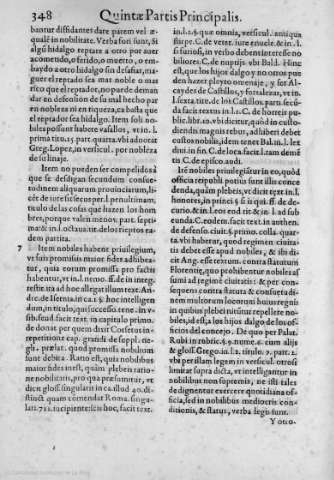 348 Quintæ Partis Principalis.
bantur diffidantes dare patem vel æ-
qualē in nobilitate. Verba sunt sunt, Si
algū hidalgo reptare a otro por auer
acomendo, o ferido, o muerto, o em-
baydo a otro hidalgo sin desafiar, ma-
guer el reptado sea mas noble o mas
rico que el reptador, no puede deman
dar en defension de su mal hecho par
en nobleza ni en riqueza, ca basta que
el reptador sea hidalgo. Item soli no-
biles possunt habere vasallos, vt in l.
prima tit. 25. part. quarta. vbi aduocat
Greg. Lopez, in versicul. por nobleza
de su linaje.
Item no pueden ser compelidos a
que se desdigan secundum consue-
tudinem aliquarum prouinciarum, li-
cèt de iure
titulo de las cosas que hazen los hom
bres, porque valen menos part. septi-
ma & in l. octaua. tit. de los rieptos ea-
dem partita.
7 Item nobiles habent priuilegium,
vt suis promissis maior fides adhibea-
tur, quia eorum promissa pro factis
habentur, vt in l. nemo. ff. de in integ.
restit. ita ad hoc allegat illum text. An-
dic. de Isernia in ca. 1. §. hoc intelligen
dum, in titulo, qui successo. tene. in v-
sib. feud. facit text. in capitulo primo.
de donat. per quem dixit Corsetus in
repetitione cap. grandi de suppl. ne-
glig. prælat. quod promissa nobilium
sunt debita. Ratio est, quia nobilibus
maior fides inest, quàm plebeis ratio-
ne nobilitatis, pro qua præsumitur, vt
dicit gloss. singularis in ca. illud. 40. di-
stinct. quam comendat Roma. singu-
lari. 711. incipiente scis hoc, facit text.
in d. l. 2. §. que omnia, versicul. antiqua
stirpe. C. de veter. iure enucle. & in l.
si furiosi, in verbo debent interesse no-
biliores. C. de nuptijs. vbi Bald. Hinc
est, que los hijos dalgo y no otros pue
den hazer pleyto omenaje, y ser Al-
caydes de Castillos, y fortalezas, vt in
l. sexta. titu. de los Castillos. part. secū-
da facit reatum in l. 1. C. de horreis pu-
public. libr. in. vbi dicitur, quòd in custo-
diendis magnis rebus, ad liberi debet
custos nobilis, idem tenet Balin. l. lex
dui. in fin. C. de loca. facit l. ram demū
in C. de episco. audi.
Itē nobiles priuilegiātur in eo, quòd
officia reipubl. potiùs sunt illis conce-
denda, quàm plebeis, vt dicit text. in l.
honores, in princi. §. si is qui. ff. de de-
curio. & in l. eos
cunda. C. eod. facit text. in auth.
de defenso. ciuit. §. primo. colla. quar-
ta. vbi habetur, quod regimen ciuita-
tis debet esse apud nobiles, & ibi di-
cit Ang. esse textum. contra statutum
Florentię, quo prohibentur nobiles as-
sumi ad regimē ciuitatis: & per con-
sequens contra statuta & consuetudi-
nem multorum locorum huius regni
in quibus plebei nituntur repellere no-
biles, id est, a los hijos dalgo de los of-
ficios del concejo. De quo per Palac.
Rubi. in rubric. §. 9. nume. 6. cum alijs
& gloss. Grego. in l. 2. titulo 7. part. 2.
vbi per illam legem in versicul. otrosi
limitat supra dicta, vt intelligantur in
nobilibus non supremis, ne isti tales
dedignentur exercere quotidiana of-
ficia, sed in nobilibus mediocris con-
ditionis, & status, verba legis sunt.
Y otro-